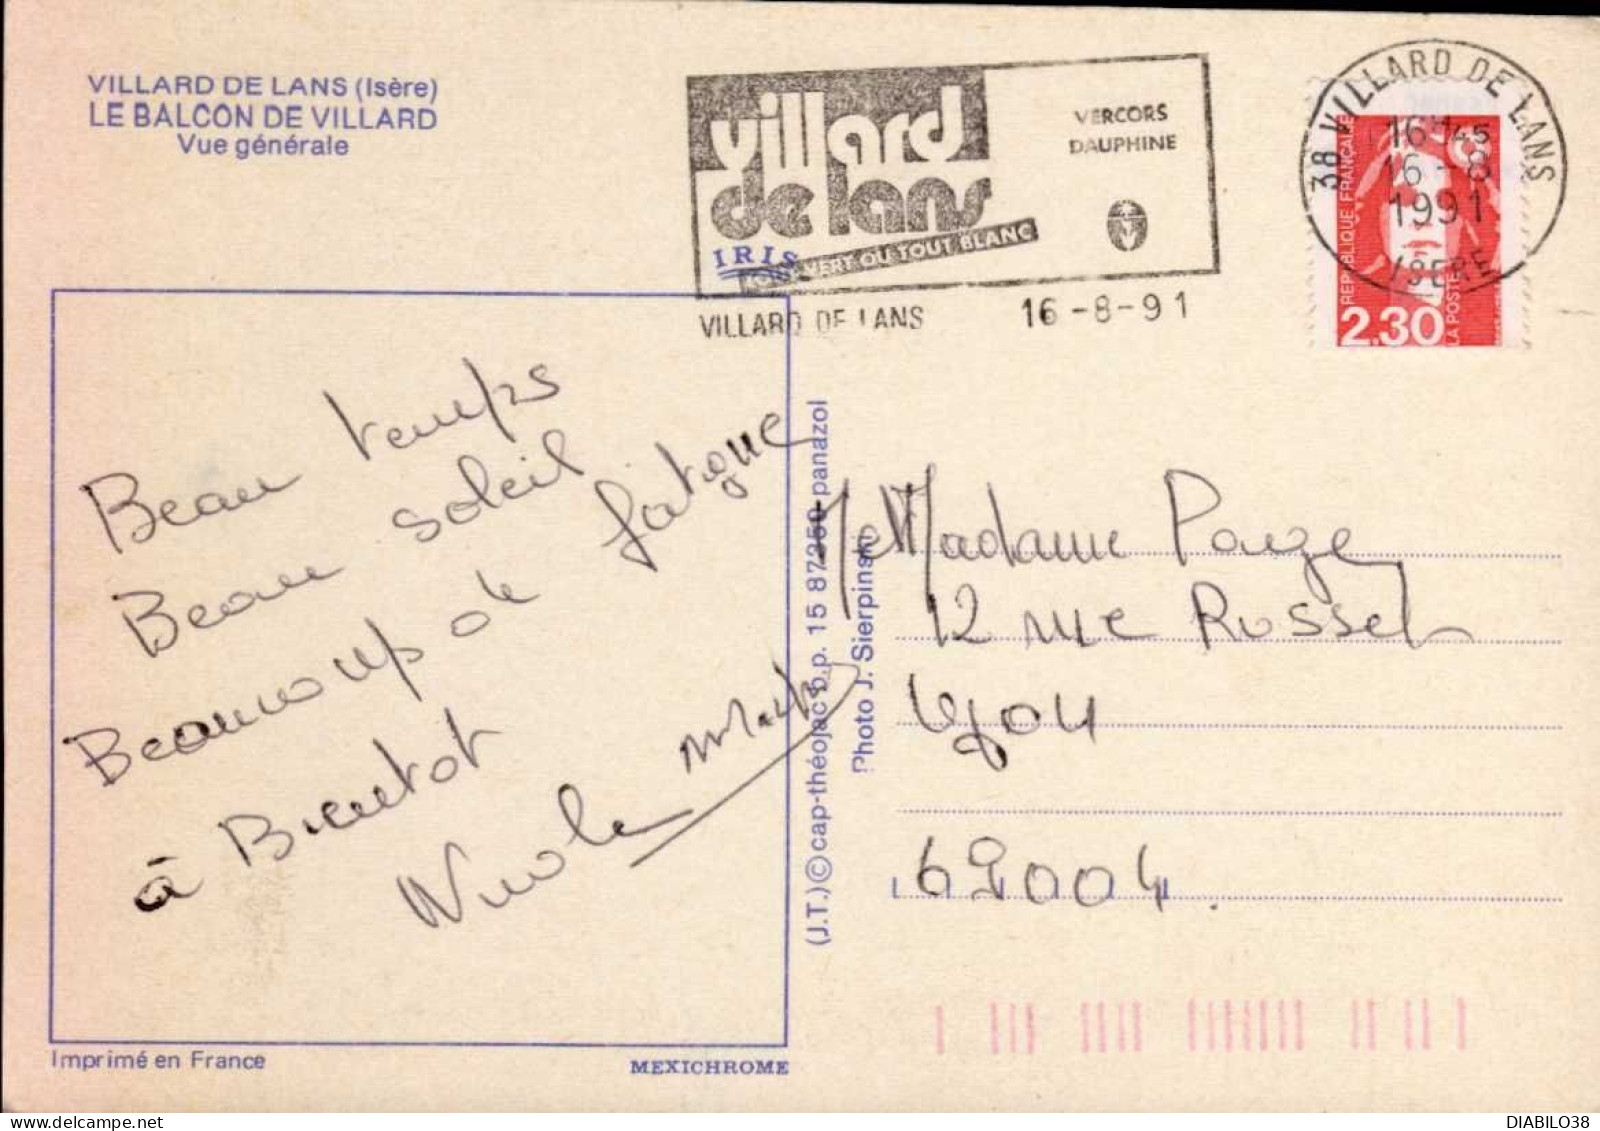 VILLARD DE LANS (Isère)
LE BALCON DE VILLARD
Vue générale
villard
de lans
VERCORS
DAUPHINE
IRIS
VERT OU TOUT BLANC
VILLARD DE LANS 16-8-91
38 VILLARD DE LANS
16 H 45
16-8
1991
ISERE
REPUBLIQUE FRANÇAISE
2.30
LA POSTE
Beau temps
Beau soleil
Beaucoup de fatigue
à Bientot
Nicole
(J.T.) © cap-théojac b.p. 15 87350-panazol
Photo J. Sierpinski
Madame
12 rue Rosset
Lyon
69004.
Imprimé en France
MEXICHROME
DIABILO38